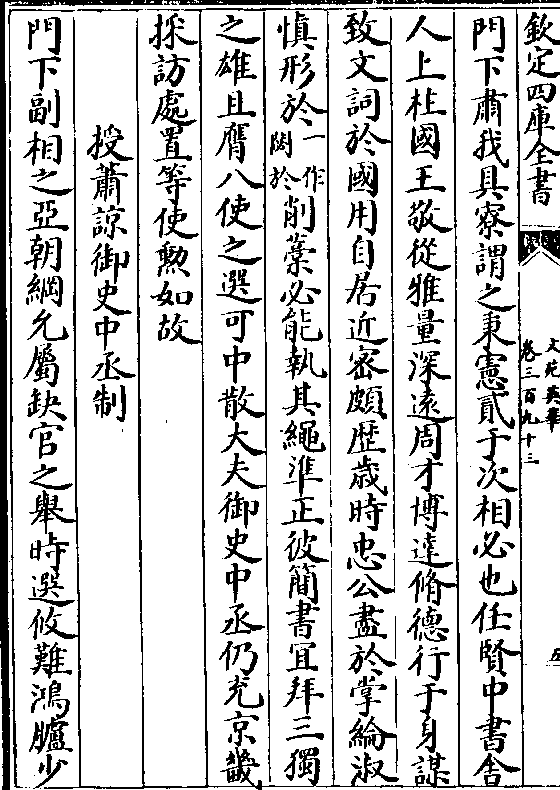 欽定四庫全書
文苑英華
卷三百九十三
門下肅我具寮謂之秉憲貳于次相必也任賢中書舍
人上柱國王敬從雅量深遠周才博達脩德行于身謀
致文詞於國用自居近密頗歴歲時忠公盡於掌綸淑
慎形於一作閟於削藁必能執其繩準正彼簡書宜拜三獨
之雄且膺八使之選可中散大夫御史中丞仍充京畿
採訪處置等使勲如故
授蕭諒御史中丞制
門下副相之亞朝綱允屬缺官之舉時選攸難鴻臚少